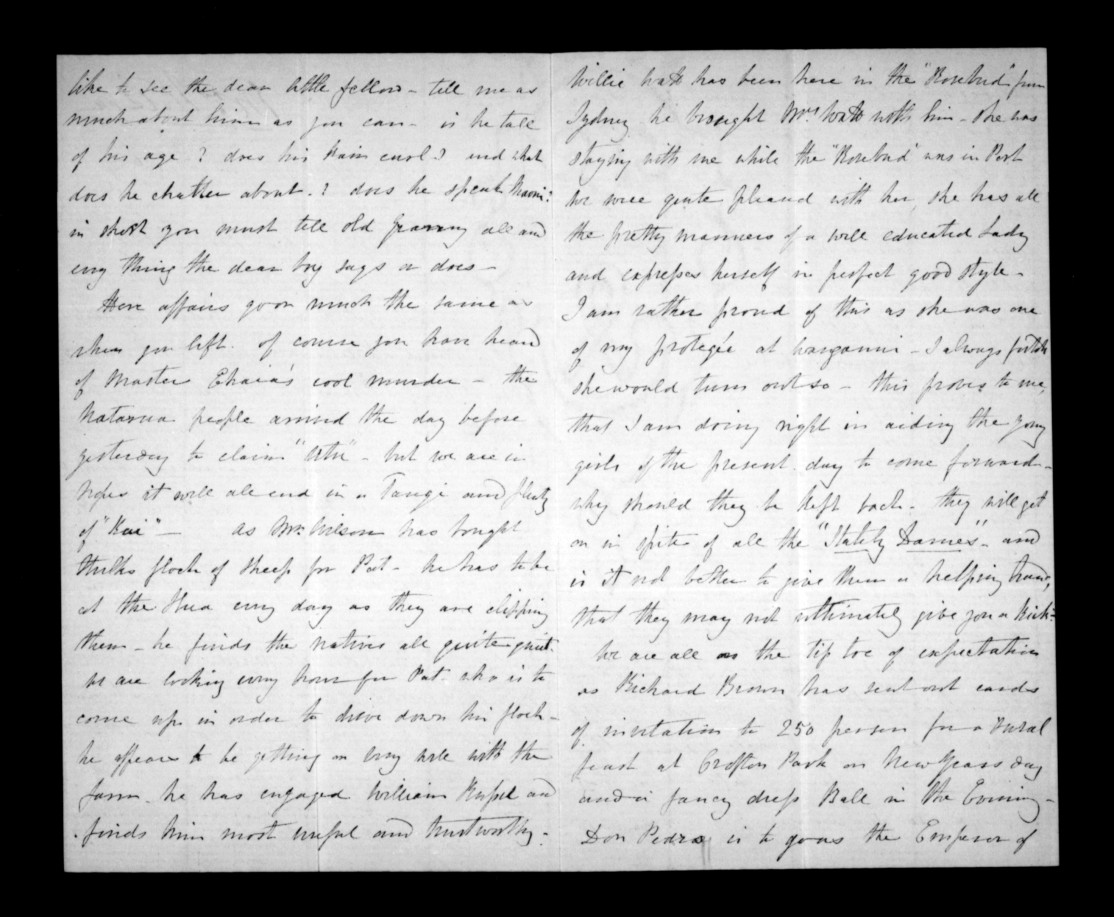 like to see the dear little fellow - tell me as
much about him as you can - is he tall
of his age? does his hair curl? and what
does he chatter about.? does he speak Maori?
in short you must tell old granny all and
every thing the dear boy says or does -
Here affairs go on much the same as
when you left. of course you have heard
of Master cool murder - the
people arrived the day before
yesterday to claim "Utu" - but we are in
hopes it will all end in a Tangi and plenty
of "Kai" - as Mr. Wilson has bought
flock of sheep for Pat - he has to be
at the Hua every day as they are clipping
them - he finds the natives all quite quiet.
we are looking every hour for Pat. who is to
come up in order to drive down his flock -
he appears to be getting on very well with the
farm. he has engaged William and
finds him most useful and trustworthy.
Willie Watt has been here in the "Rosebud" from
Sydney he brought Mrs. Watt with him - She was
staying with me while the "Rosebud" was in Port
We were quite pleased with her, she has all
the pretty manners of a well educated Lady
and expresses herself in perfect good style -
I am rather proud of this as she was one
of my protegée at - I always
she would turn out so - this proves to me,
that I am doing right in aiding the young
girls of the present day to come forward -
why should they be kept back - they will get
on in spite of all the "Stately Dames" - and
is it not better to give them a helping hand,
that they may not ultimately give you a kick?
We are all on the tip toe of expectation
as Richard Brown has sent out cards
of invitation to 250 persons for a rural
feast at Crofton Park on New Years day
and a fancy dress Ball in the Evening -
Don Pedro is to go as the Emperor of